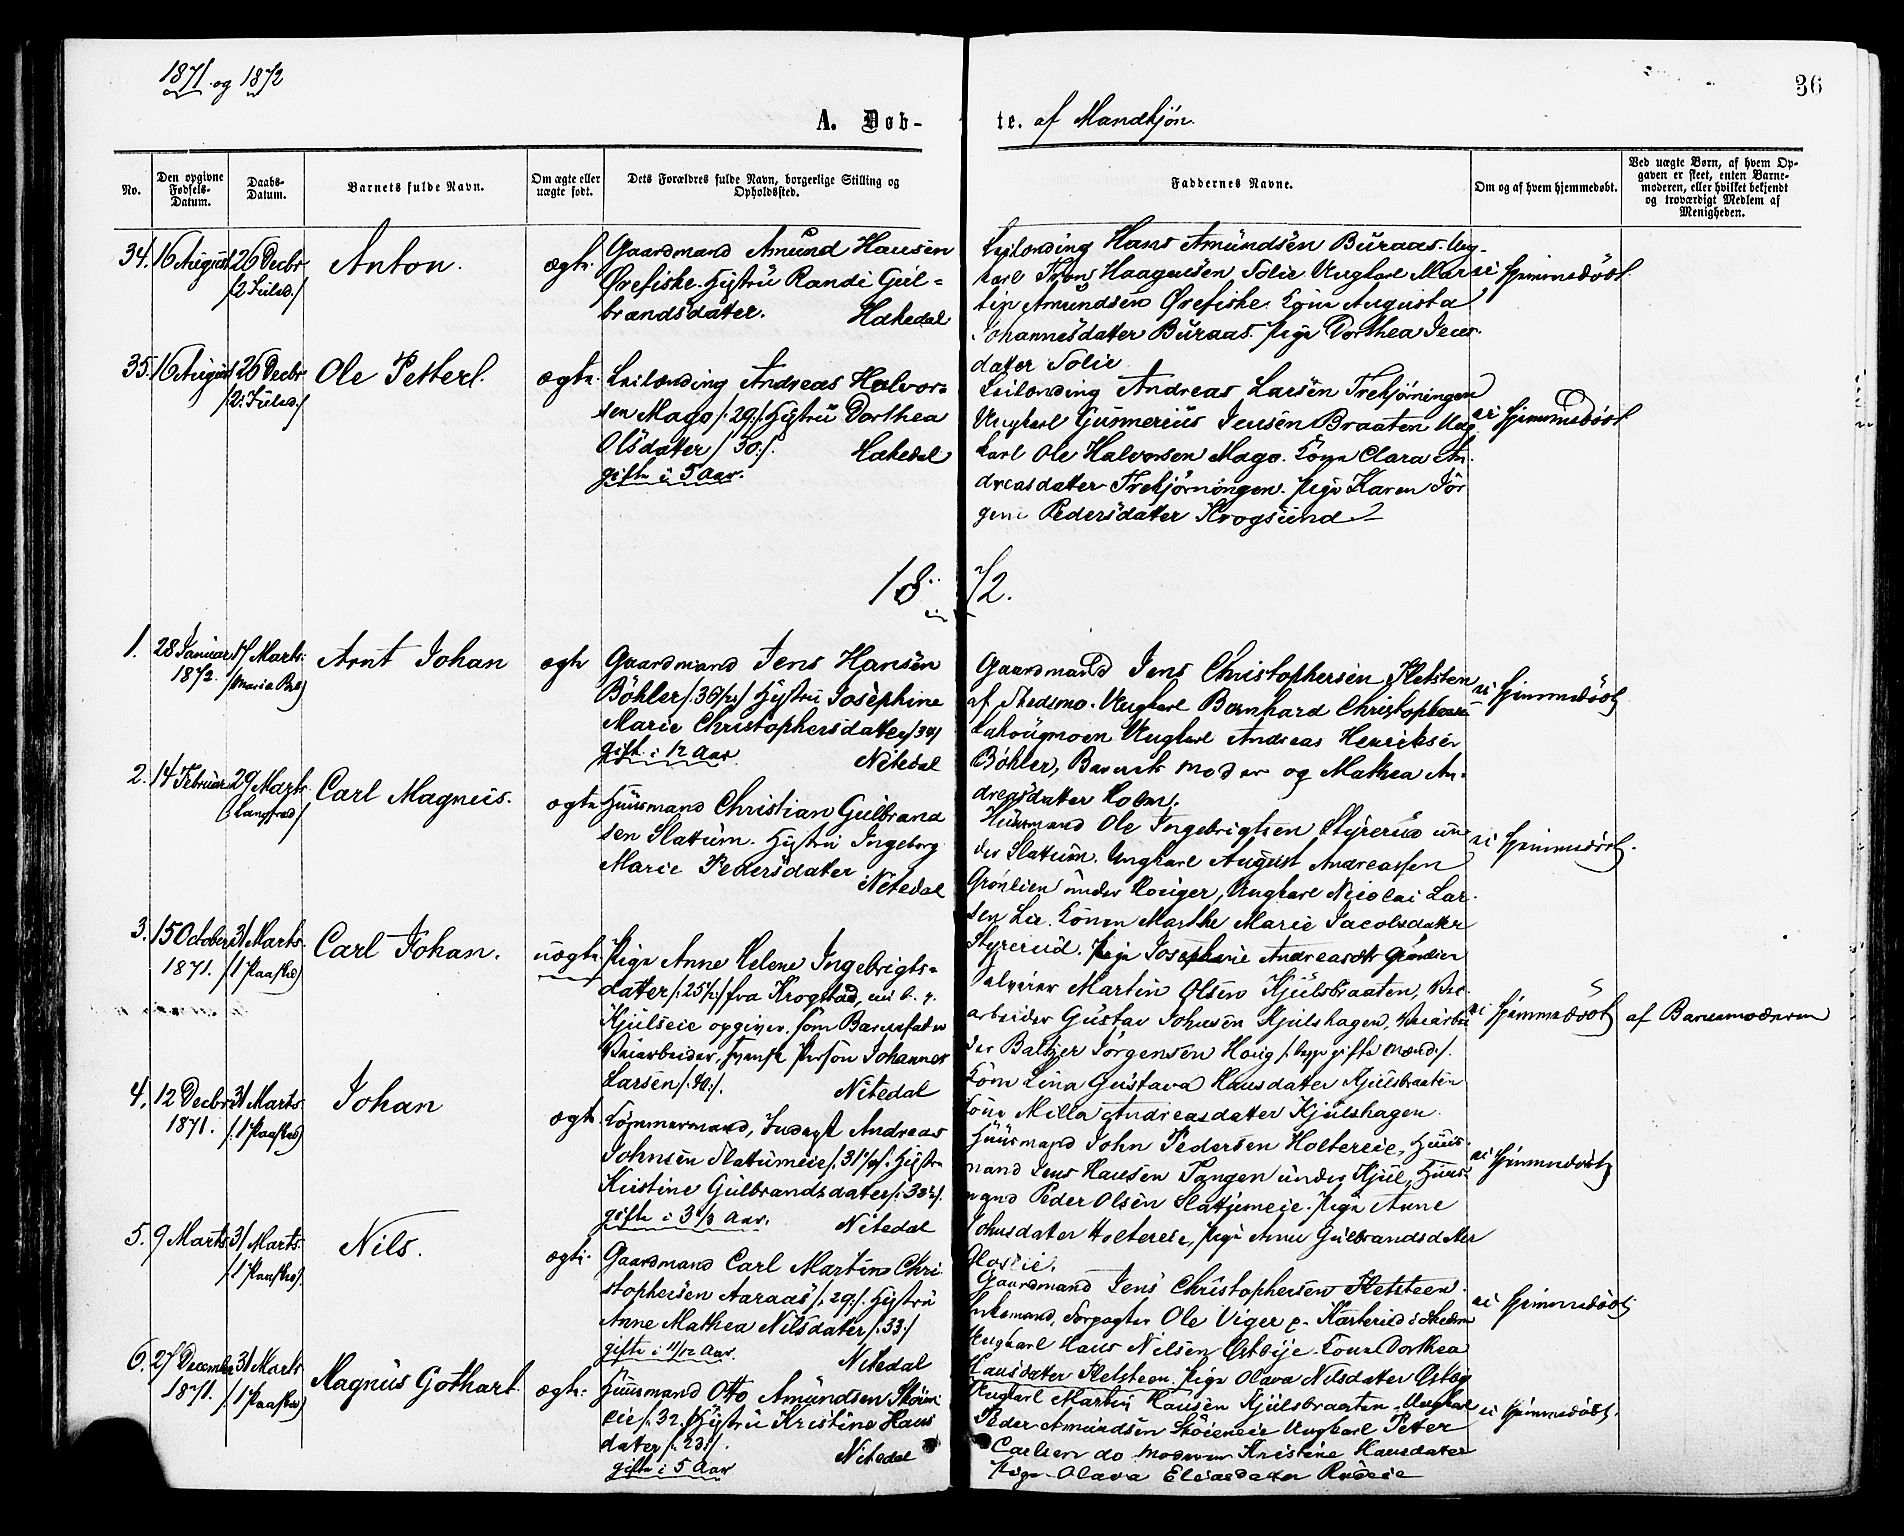 1871 og 1872
36
A. Døb-
te. af Mandkjøn.
No.
Den opgivne Fødsels-Datum.
Daabs-Datum.
Barnets fulde Navn.
Om ægte eller uægte født.
Dets Forældres fulde Navn, borgerlige Stilling og Opholdssted.
Faddernes Navne.
Om og af hvem hjemmedøbt.
Ved uægte Børn, af hvem Opgaven er skeet, enten Barnemoderen, eller hvilket bekjendt og troværdigt Medlem af Menigheden.
34. 16 August 26 Decbr /2 Juled./ Anton. ægte.
Gaardmand Amund Hansen
Ørefiske. Hustru Randi Gul=
brandsdatter. Hakedal
Leilending Hans Amundsen Buraas. Ung-
karl Tron Haagensen Solie Ungkarl Mar
tin Amundsen Ørefiske. Kone Augusta
Johannesdatter Buraas. Pige Dorthea Jens
datter Solie
ei hjemmedøbt.
35. 16 August 26 Decbr /:2: Juled:/ Ole Petterl. ægte.
Leilending Andreas Halvor=
sen Mago /:29:/ Hustru Dorthea
Olsdatter /:30:/. Hakedal
gifte i 5 Aar.
Leilending Andreas Larsen Trekjørningen
Ungkarl Gunnerius Jensen Braaten Ung
karl Ole Halvorsen Mago. Kone Clara An-
dreasdatter Trekjørningen. Pige Karen Jør
gine Pedersdatter Krogsund
ei hjemmedøbt
1872.
1. 28 Januar 1872. 17 Marts /Maria Beb/ Arnt Johan ægte
Gaardmand Jens Hansen
Bøhler /:36½:/ Hustru Josephine
Marie Christophersdatter /34/
gift i 12 Aar Nitedal
Gaardmand Jens Christophersen Sletsten
af Skedsmo. Ungkarl Bernhard Christophersen
Ungkarl Andreas Henriksen
Bøhler, Barnets moder og Mathea An-
dreasdatter Holm.
ei hjemmedøbt
2. 14 Februar 29 Marts /:Langfred/ Carl Magneus. ægte
Huusmand Christian Gulbrand
sen Slattum. Hustru Ingeborg
Marie Pedersdatter
Nitedal
Huusmand Ole Ingebrigtsen Styrerud un
der Slattum. Ungkarl August Andreassen
Grønlien under Houger, Ungkarl Nicolai Lar-
sen Lie. Konen Marthe Marie Jacobsdatter
Styrerud. Pige Josephine Andreasdtr Grønlien
ei hjemmedøbt.
3. 15 October 1871. 31 Marts /1 Paaskd/ Carl Johan. uægte
Pige Anne Helene Ingebrigts=
datter /:25½:/ fra Krogstad, nu b. p.
Kjulseie opgiver som Barnefader
Veiarbeider, svensk Person Johannes
Larsen /:40:/. Nitedal
Martin Olsen Kjulsbraaten, Vei
arbeider Gustav Johnsen Kjulshagen, Veiarbei
der Baltzer Jørgensen Houg /:begge gifte Mænd:/.
Kone Lina Gustava Hansdatter Kjulsbraaten
Kone Milla Andreasdatter Kjulshagen.
ei hjemmedøbt
af Barnemoderen
4. 12 Decbr 1871. 31 Marts /:1 Paaskd/ Johan ægte
Tømmermand, Inderst Andreas
Johnsen Slatumeie /:31½:/. Hustru
Kristine Gulbrandsdatter /:30½:/.
gifte i 3⅓ Aar. Nitedal
Huusmand John Pedersen Holtereie, Huus-
mand Jens Hansen Tangen under Kjul, Huus-
mand Peder Olsen Slattumeie. Pige Anne
Johnsdatter Holtereie, Pige Anne Gulbrandsdatter
ei hjemmedøbt
5. 9 Marts 31 Marts /1 Paaskd/ Nils. ægte.
Gaardmand Carl Martin Chri
stophersen Aaraas /:29:/. Hustru
Anne Mathea Nilsdatter /:33:/
gifte i 11/12 Aar. Nitedal
Gaardmand Jens Christophersen Sletsteen.
Enkemand, Forpagter Ole Viger p. Karterud i Skedsm
Ungkarl Hans Nilsen Østbye. Kone Dorthea
Hansdatter Sletsteen. Pige Olava Nilsdatter Østby
ei hjemmedøbt
6. 27 December 1871. 31 Marts /1 Paaskd/ Magnus Gothart. ægte.
Huusmand Otto Amundsen Skøien
eie /:32:/ Hustru Kristine Hans
datter /:23:/. Nitedal
gifte i 5 Aar
Ungkarl Martin Hansen Kjulsbraaten. Ungkarl
Peder Amundsen Skøieneie Ungkarl Peter
Carlsen do Moderen Kristine Hansdatter
Pige Olava Eliasdatter Rudeie
ei hjemmedøbt.